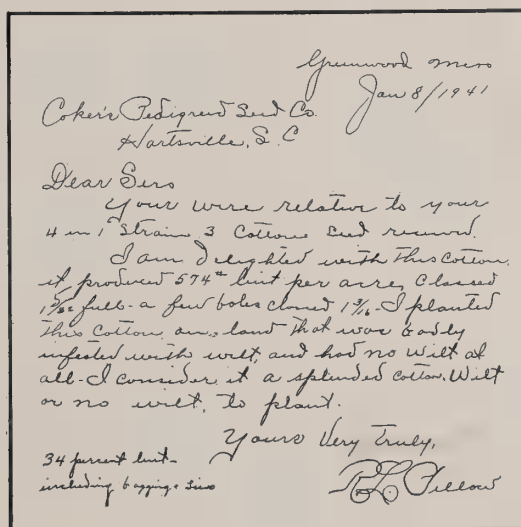 Greenwood Miss
Jan 8/1941
Coker's Pedigreed Seed Co.
Hartsville, S. C
Dear Sirs
Your wire relative to your
4 in 1 Strain 3 Cotton Seed received.
I am delighted with this cotton,
it produced 574# lint per acre, Classed
1 5/32 full - a few bales classed 1 3/16 - I planted
this cotton on land that was badly
infested with wilt, and had no wilt at
all - I consider it a splended cotton. Wilt
or no wilt, to plant.
Yours Very Truly,
34 percent lint -
including bagging &
Fillow